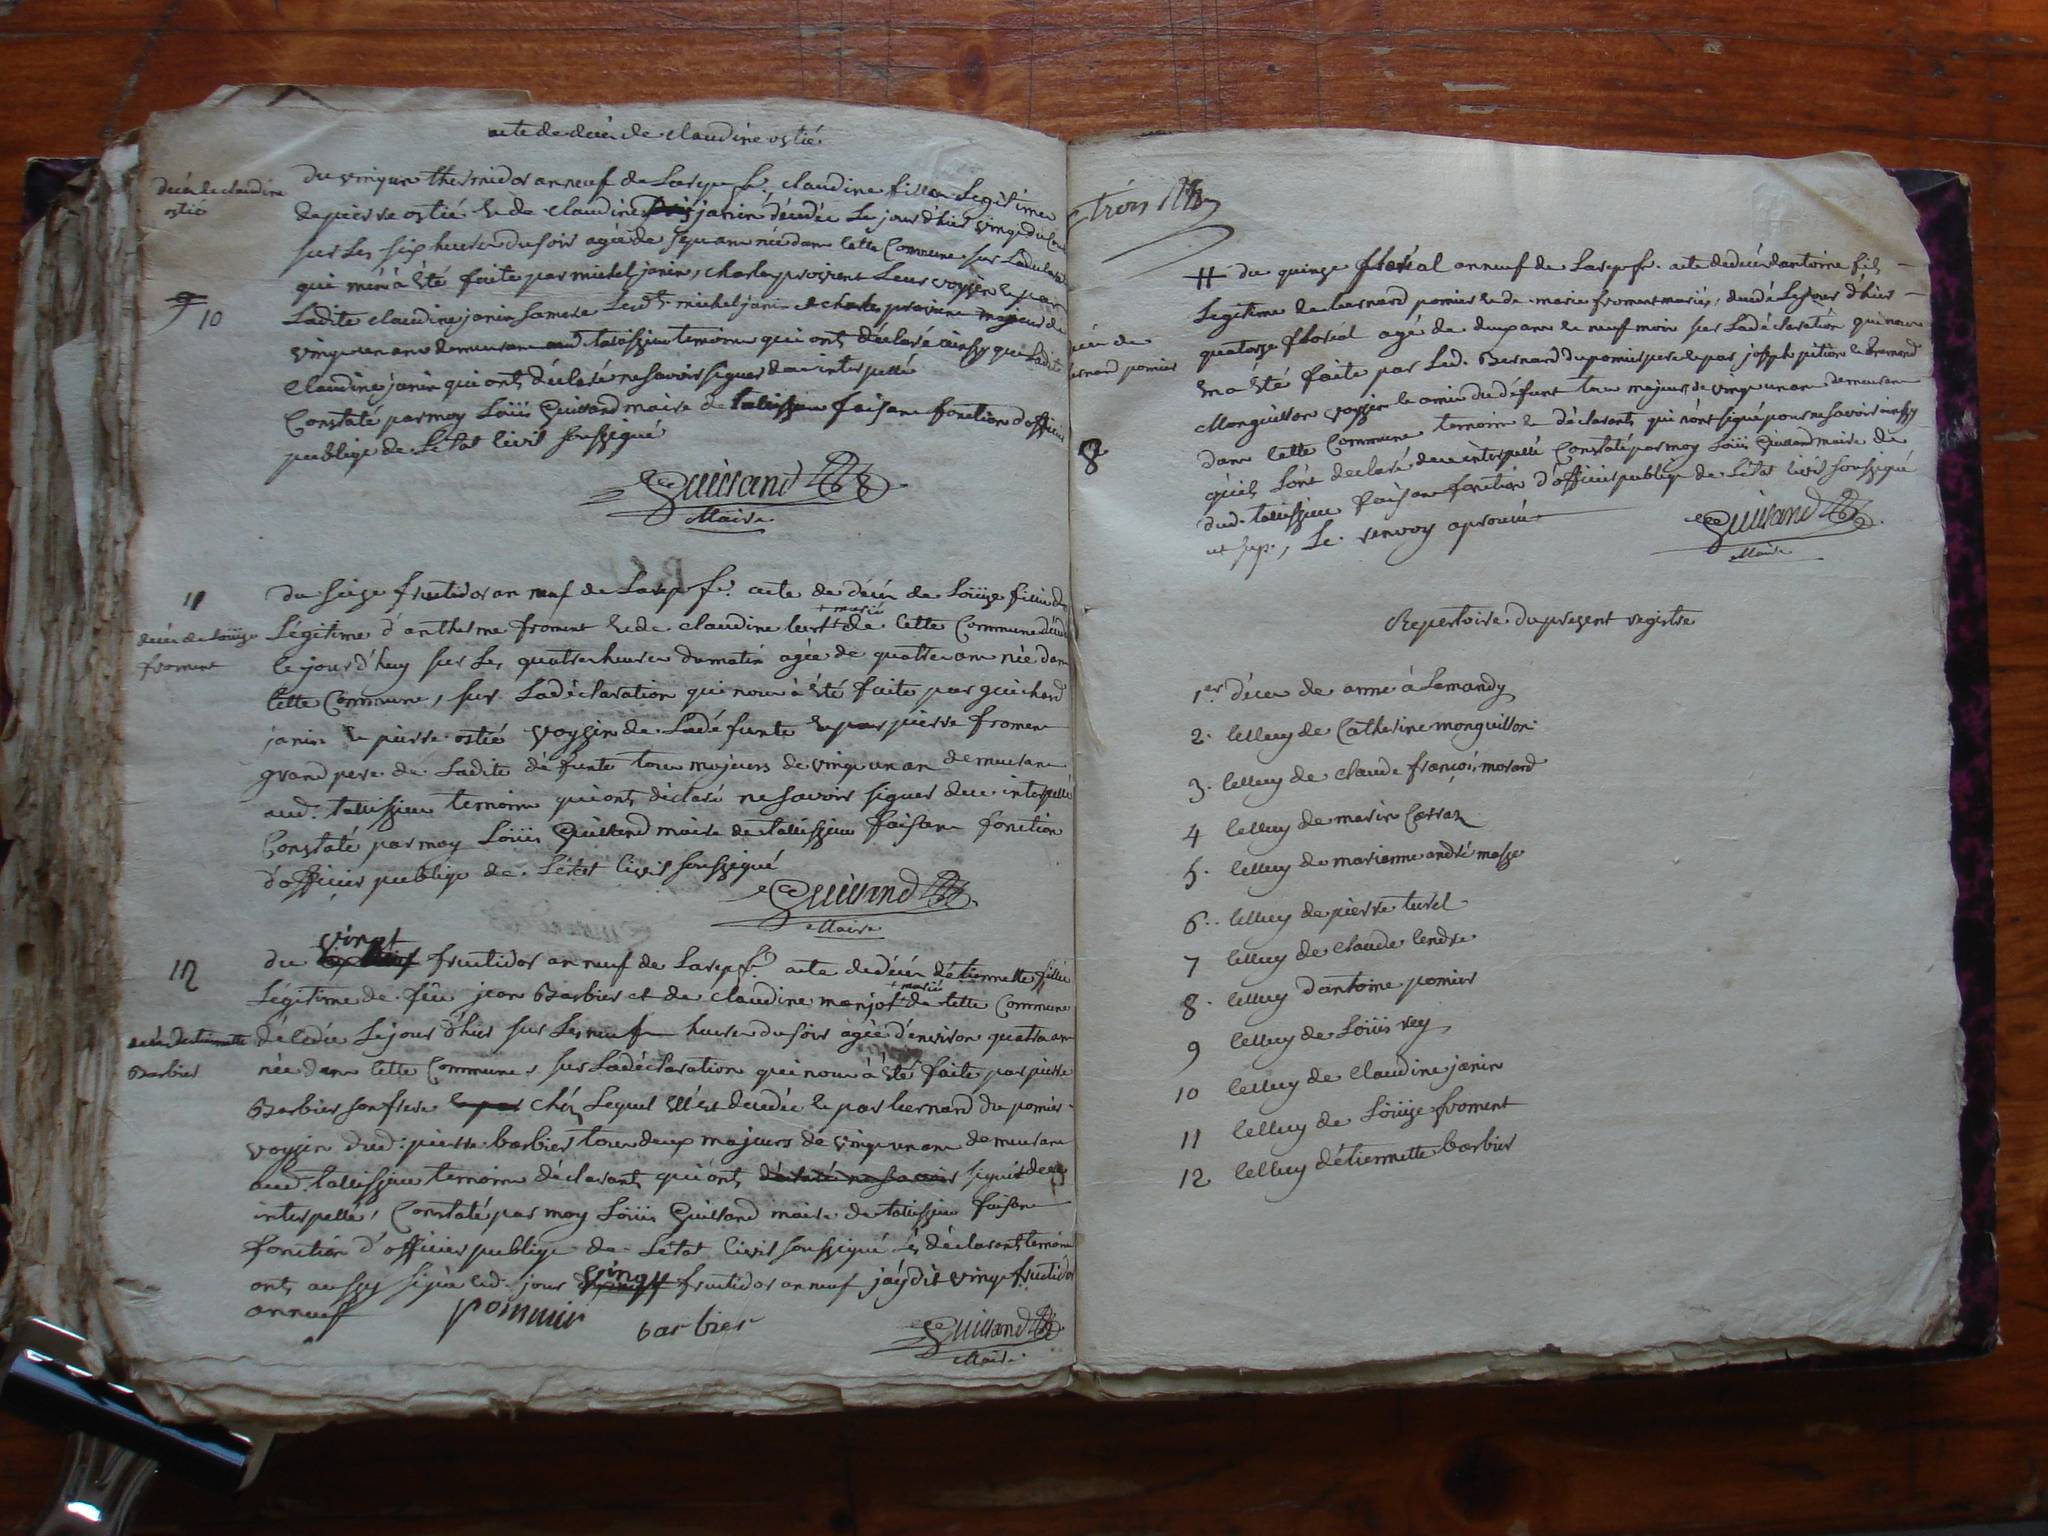 acte de décés de claudine ostié
décés de claudine
ostié
du vingun thermidor an neuf de Larep fr., claudine fille Legitime
de pierre ostié & de claudine janin décédée Le jour d'hier vingt du
sur Les six heures du soir agée de sept ans née dans cette Commune sur
qui m'en à été faite par michel janin, charles provient Leur voyzin & par
9 10
Ladite claudine janin samere Lesd. michel janin & charles majeurs de
vingun ans demeurans aud tallissieu temoins qui ont déclaré ainssy que Ladite
claudine janin qui ont déclaré ne savoir signer de ce interpellé
Constaté par moy Loüis Guilland maire de tallissieu faisant fonction d'officier
publiqe de Letat Civil soussigné
Guilland
Maire
11
décés de Loüize
froment
du seize fructidor an neuf de Larep fr. acte de décés de Loüize fille
Légitime d'anthelme froment & de claudine + mariés de cette Commune décédé
le jour d'huy sur Les quatre heures du matin agée de quatre ans née dans
cette Commune, sur Ladéclaration qui nous à été faite par guichard
janin & pierre ostié voyzin de Ladéfunte & par pierre froment
grand pere de Ladite défunte tous majeurs de vingun an demeurans
aud. tallissieu temoins qui ont déclaré ne savoir signer de ce interpellé
Constaté par moy Loüis Guilland maire de tallissieu faisant fonction
d'officier publiqe de Létat Civil soussigné
Guilland
Maire
12
décés détiennette
Barbier
du vingt fructidor an neuf de Larep fr. acte de décés détiennette fille
Légitime de feu jean Barbier et de claudine monjot + mariés de cette Commune
décédée Le jour d'hier sur Les neuf heures du soir agée d'environ quatre ans
née dans cette Commune, sur Ladéclaration qui nous à été faite par pierre
Barbier son frere & par chéz Lequel ell'est décédée & par bernard du pomier
voyzin dud. pierre barbier tous deux majeurs de vingun ans demeurans
aud. tallissieu temoins déclarants qui ont déclaré ne savoir signé de ce
interpellé, Constaté par moy Loüis Guilland maire de tallissieu faisant
fonction d'officier publiqe de Létat Civil soussigné Les déclarants temoins
ont aussy signé led. jour vingt fructidor an neuf jaydit vingt fructidor
an neuf
pommier
barbier
Guilland
Maire
trois
# du quinze floréal an neuf de Larep fr. acte de décés d'antoine fils
Legitime de bernard pomier & de marie froment mariés, décédé Le jour d'hier
quatorze floréal agé de deux ans & neuf mois sur Ladéclaration qui nous
en à été faite par Led. Bernard dupomier pere & par joseph pition & bramond
Monguillon voyzin & amis du défunt tous majeurs de vingun ans demeurans
dans cette Commune temoins & déclarants qui n'ont signé pour ne savoir ainssy
qu'ils L'ont déclaré de ce interpellé Constaté par moy Loüis Guilland maire de
dud. tallissieu faisant fonction d'officier publiqe de Létat Civil soussigné
ut sup., Le renvoy aprouvé
8
Guilland
Maire
Repertoire du present registre
1er décés de anne à Lemandy
2. celluy de Catherine monguillon
3. celluy de claude françois morard
4 celluy de marin Carraz
5. celluy de marianne andré masse
6.. celluy de pierre turel
7 celluy de claude cendre
8. celluy d'antoine pomier
9 celluy de Loüis rey
10 celluy de claudine janin
11 celluy de Loüize froment
12 celluy détiennette barbier